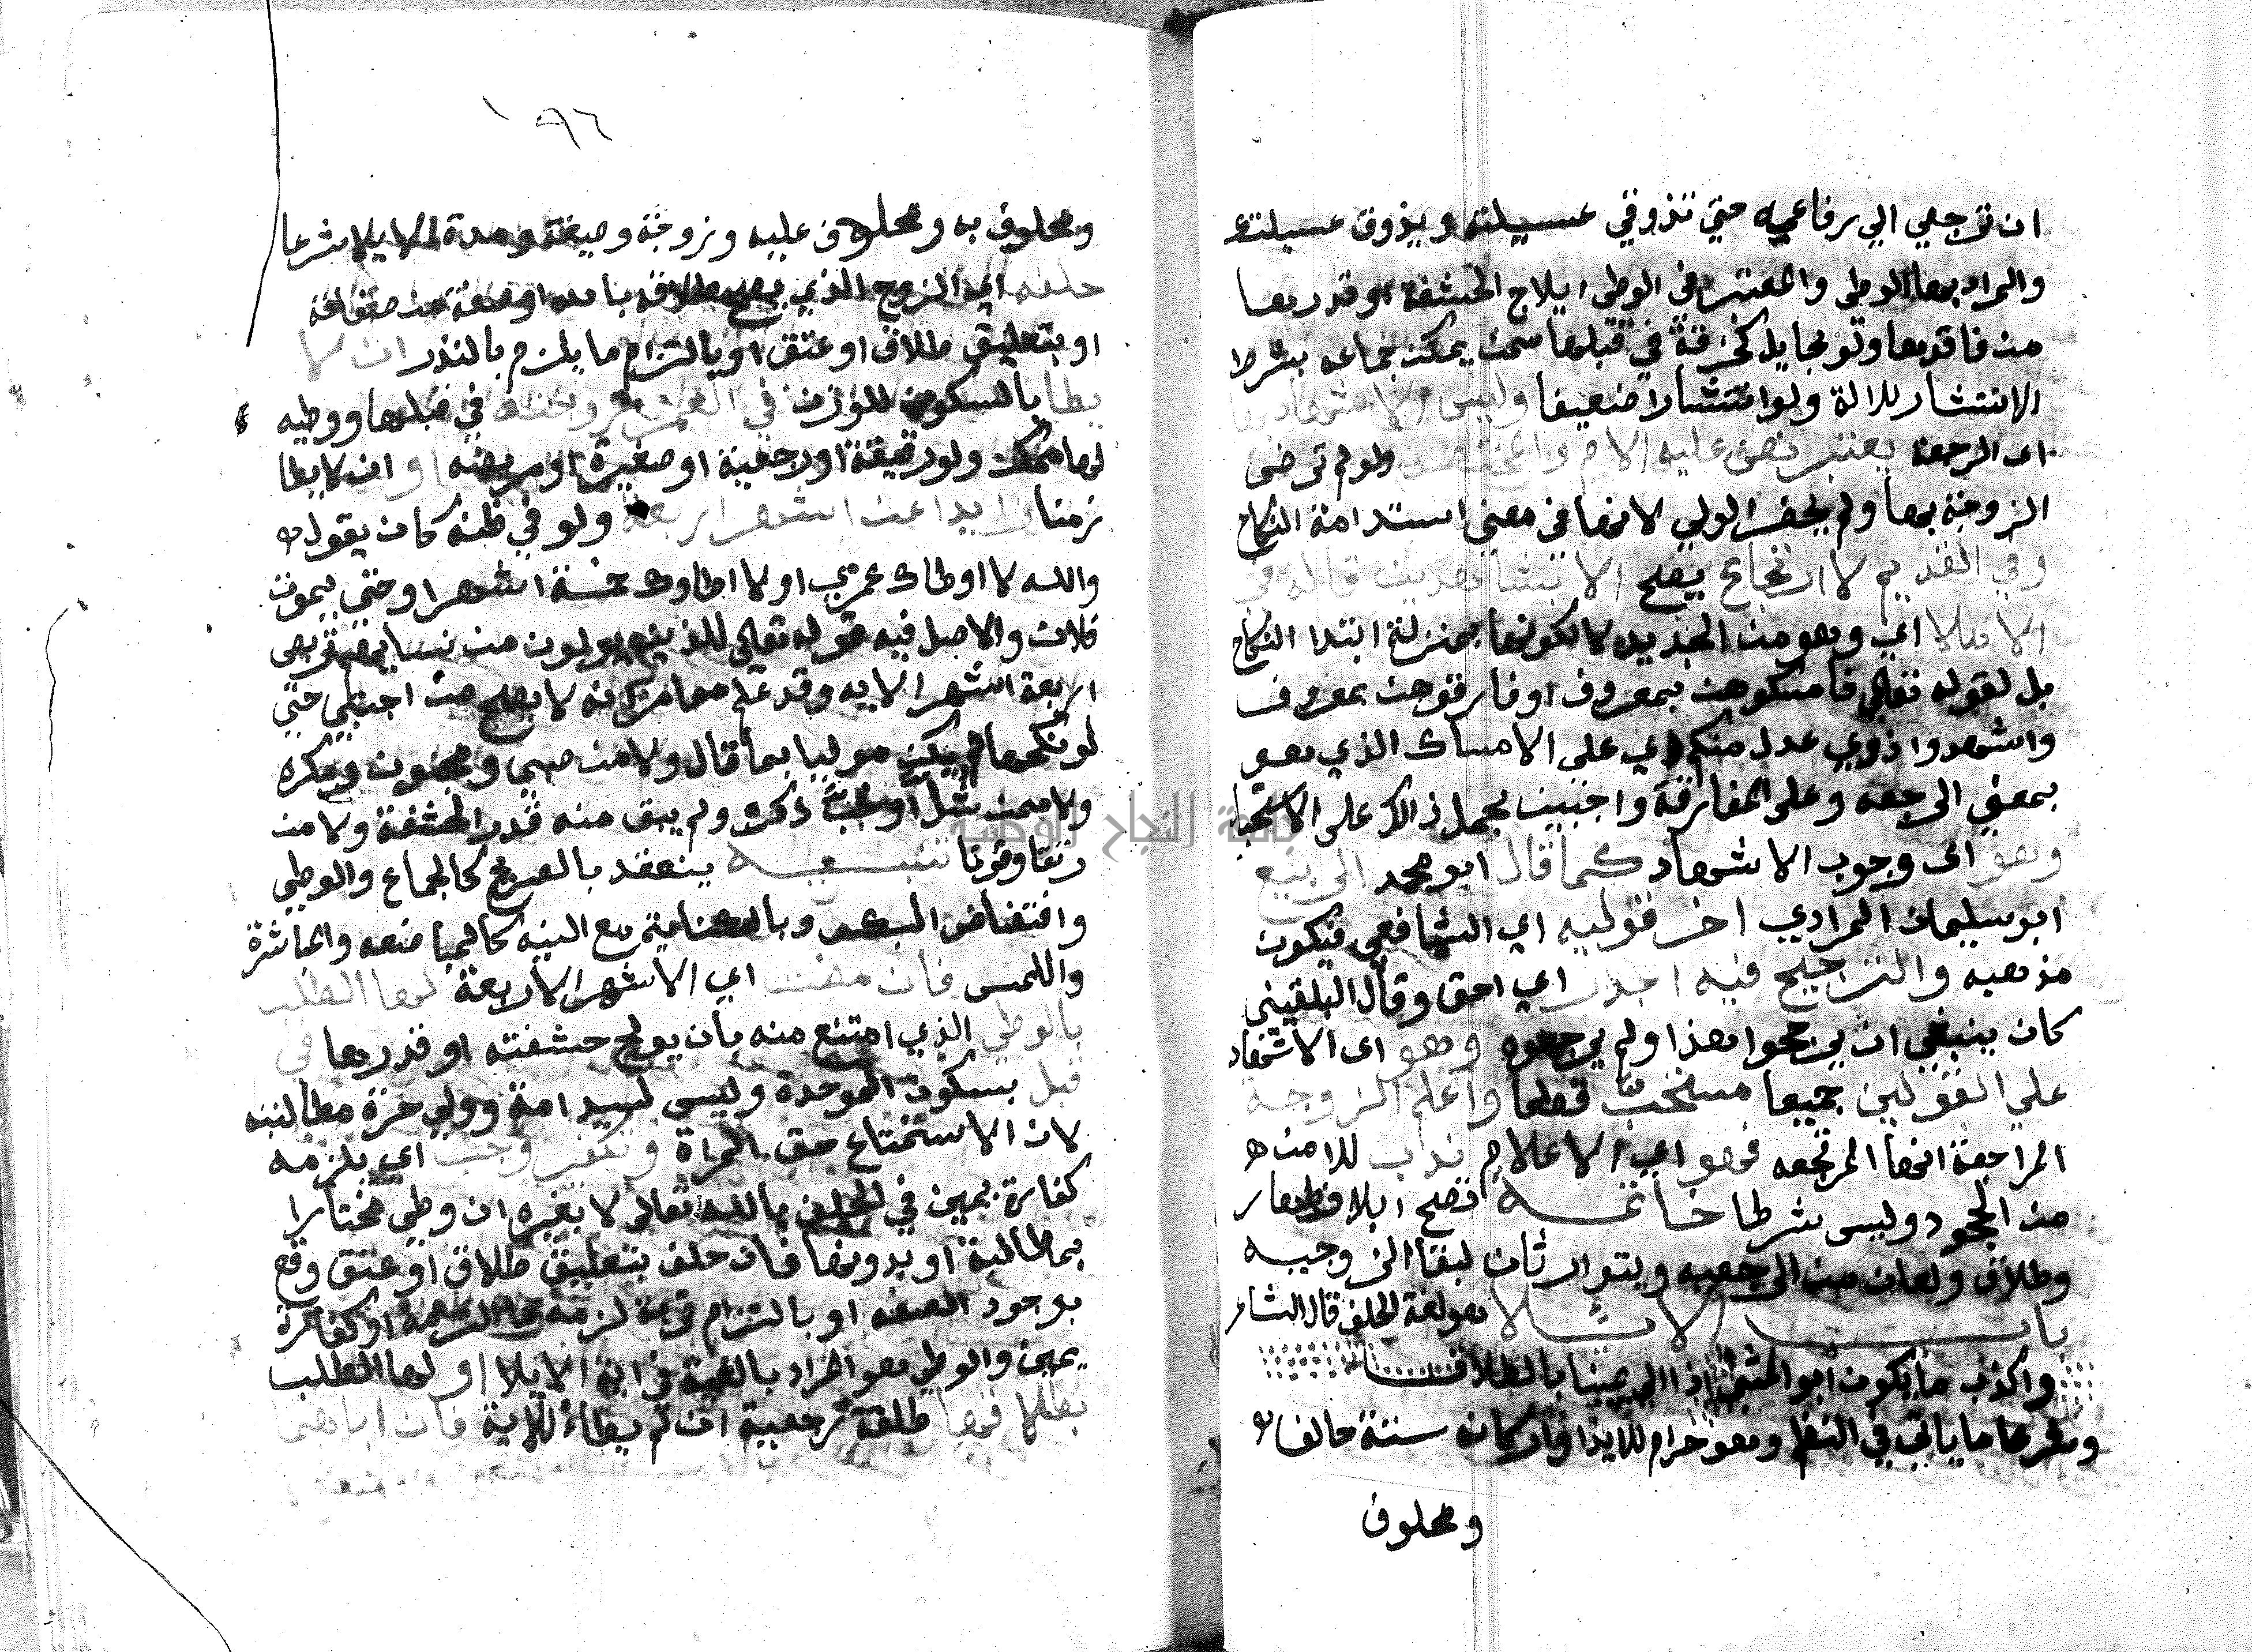 ان ترجعي الي رفاعه حتي تذوقي عسيلته ويذوق عسيلتك
والمراد بها الوطي والمعتبر في الوطي ايلاج الحشفة او قدرها
من فاقدها ولو بحايل كخرقة في قبلها ممن يمكن جماعه بشرط
الانتشار للالة ولو انتشارا ضعيفا وليس الاشهاد بها
اى الرجعة يعتبر نص عليه الام والمختصر ولو لم ترضى
الزوجة بها ولم يحضر الولي لانها في معني استدامة النكاح
وفي القديم لا ارتجاع يصح الا بشاهدين قاله في
الاملا اي وهو من الجديد لا لكونها بمنزلة ابتدا النكاح
بل لقوله تعالي فامسكوهن بمعروف او فارقوهن بمعروف
واشهدوا ذوي عدل منكم اي علي الامساك الذي هو
بمعني الرجعه وعلى المفارقة واجيب بحمل ذالك على الاستحباب
وهو اى وجوب الاشهاد كما قال ابو محمد الربيع
ابو سليمان المرادي اخر قوليه اي الشافعي فيكون
مذهبه والترجيح فيه اجدر اي احق وقال البلقيني
كان ينبغي ان يرجحوا هذا ولم يرجحوه وهو اى الاشهاد
علي القولين جميعا مستحب قطعا واعلم الزوجة
المراجعة انها المرتجعه فهو اي الاعلام ندب للامن
من الجحود وليس شرطا خاتمة تصح ايلا وظهار
وطلاق ولعان من الرجعيه ويتوارثان لبقا الزوجيه
باب الايلا هو لغة الحلف قال الشاعر
واكذب ما يكون ابو المثني اذا الي يمينا بالطلاق
وشرعا ما ياتي في النظم وهو حرام للايذا واركانه ستة حالف
ومحلوف
١٩٦
ومحلوف به ومحلوف عليه وزوجة وصيغة ومدة الايلا شرعا
حلفه اي الزوج الذي يصح طلاقه بالله او صفة من صفاته
او بتعليق طلاق او عتق او بالتزام ما يلزم بالنذر ان لا
يطا بالسكون للوزن في العمر زوجته في قبلها ووطيه
لها ممكن ولو رقيقة او رجعية او صغيرة او مريضة او ان لا يطا
زمنا زايدا عن اشهر اربعة ولو في ظنه كان يقول
والله لا اوطاك عمري او لا اطاوك خمسة اشهر او حتي يموت
فلان والاصل فيه قوله تعالي للذين يولون من نسايهم تربص
اربعة اشهر الايه وقد علم مما مر انه لا يصح من اجنبي حتي
لو نكحها لم يكن موليا بما قال ولا من صبي ومجنون ومكره
ولا ممن شل او جب ذكره ولم يبق منه قدر الحشفة ولا من
رتقا وقرنا تنبيه ينعقد بالصريح كالجماع والوطي
وافتضاض البكر وبالكناية مع النيه كالمباضعه والمباشرة
واللمس فان مضت اي الاشهر الاربعة لها الطلب
بالوطي الذي امتنع منه بان يولج حشفته او قدرها في
قبل بسكون الموحدة وليس لسيد امة وولي حرة مطالبته
لان الاستمتاع حق المراة وتكفير وجب اي يلزمه
كفارة يمين في الحلف بالله تعالى لا بغيره ان وطي مختارا
بمطالبة او بدونها فان حلف بتعليق طلاق او عتق وقع
بوجود الصفه او بالتزام قربة لزمه ما التزمه او كفارة
يمين والوطي هو المراد بالفية في اية الايلا او لها الطلب
بطلاقها طلقة رجعية ان لم يطا للاية فان اباهما